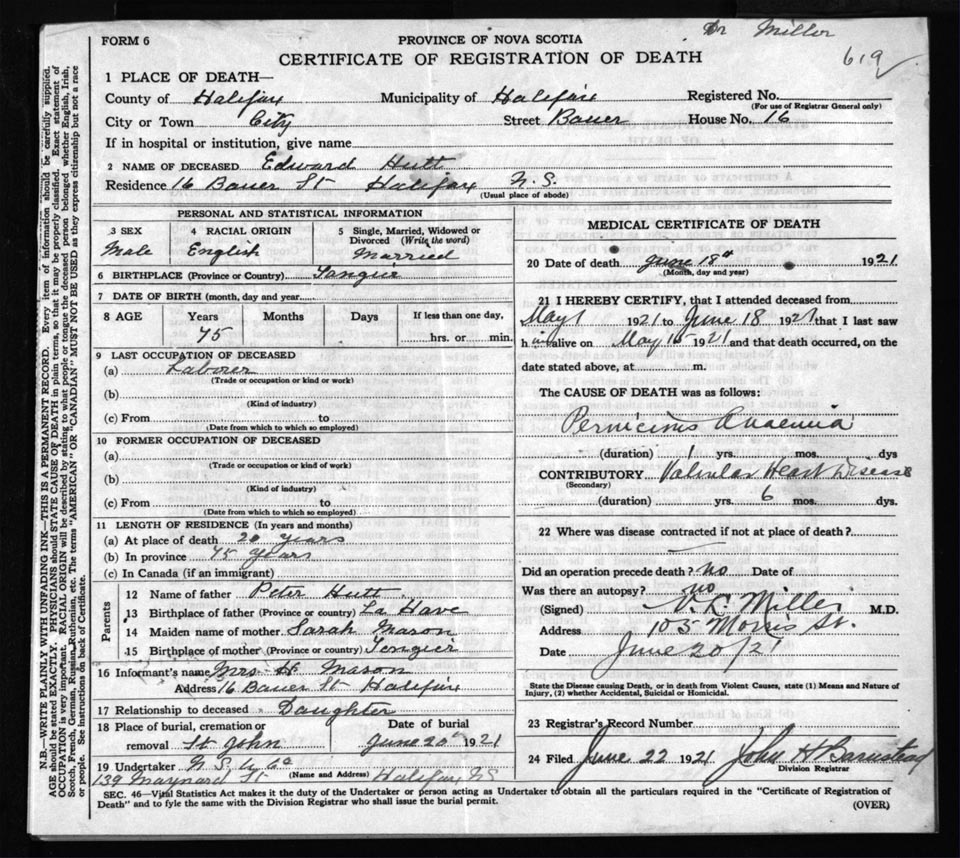 Dr Miller
FORM 6
PROVINCE OF NOVA SCOTIA
619
CERTIFICATE OF REGISTRATION OF DEATH
1 PLACE OF DEATH—
County of Halifax Municipality of Halifax Registered No.
(For use of Registrar General only)
City or Town City Street Bauer House No. 16
If in hospital or institution, give name
2 NAME OF DECEASED Edward Hutt
Residence 16 Bauer St Halifax N.S.
(Usual place of abode)
PERSONAL AND STATISTICAL INFORMATION
3 SEX 4 RACIAL ORIGIN 5 Single, Married, Widowed or Divorced (Write the word)
Male English Married
6 BIRTHPLACE (Province or Country) Tangier
7 DATE OF BIRTH (month, day and year)
8 AGE Years Months Days If less than one day,
75 hrs. or min.
9 LAST OCCUPATION OF DECEASED
(a) Laborer
(Trade or occupation or kind or work)
(b)
(Kind of industry)
(c) From to
(Date from which to which so employed)
10 FORMER OCCUPATION OF DECEASED
(a)
(Trade or occupation or kind of work)
(b)
(Kind of industry)
(c) From to
(Date from which to which so employed)
11 LENGTH OF RESIDENCE (In years and months)
(a) At place of death 20 years
(b) In province 75 years
(c) In Canada (if an immigrant)
Parents
12 Name of father Peter Hutt
13 Birthplace of father (Province or country) La Have
14 Maiden name of mother Sarah Mason
15 Birthplace of mother (Province or country) Tangier
16 Informant's name Mrs H Mason
Address 16 Bauer St Halifax
17 Relationship to deceased Daughter
18 Place of burial, cremation or removal St John
Date of burial June 20th 1921
19 Undertaker N.S. U Co
139 Maynard St (Name and Address) Halifax NS
MEDICAL CERTIFICATE OF DEATH
20 Date of death June 18th 1921
(Month, day and year)
21 I HEREBY CERTIFY, that I attended deceased from
May 1 1921 to June 18 1921 that I last saw
him alive on May 16 1921 and that death occurred, on the
date stated above, at m.
The CAUSE OF DEATH was as follows:
Pernicious Anaemia
(duration) 1 yrs. mos. dys
CONTRIBUTORY Valvular Heart Disease
(Secondary)
(duration) yrs. 6 mos. dys.
22 Where was disease contracted if not at place of death?
Did an operation precede death? no Date of
Was there an autopsy? no
(Signed) Miller M.D.
Address 105 Morris St.
Date June 20/21
State the Disease causing Death, or in death from Violent Causes, state (1) Means and Nature of
Injury, (2) whether Accidental, Suicidal or Homicidal.
23 Registrar's Record Number
24 Filed June 22 1921 John H Barnstead
Division Registrar
SEC. 46—Vital Statistics Act makes it the duty of the Undertaker or person acting as Undertaker to obtain all the particulars required in the "Certificate of Registration of
Death" and to fyle the same with the Division Registrar who shall issue the burial permit.
(OVER)
N.B.—WRITE PLAINLY WITH UNFADING INK—THIS IS A PERMANENT RECORD. Every item of information should be carefully supplied.
AGE should be stated EXACTLY. PHYSICIANS should STATE CAUSE OF DEATH in plain terms, so that it may be properly classified. Exact statement of
OCCUPATION is very important. RACIAL ORIGIN will be described by stating to what people or tongue the deceased person belonged whether English, Irish,
Scotch, French, German, Russian, Ruthenian, etc. The terms "AMERICAN" OR "CANADIAN" MUST NOT BE USED as they express citizenship but not a race
or people. See instructions on back of Certificate.